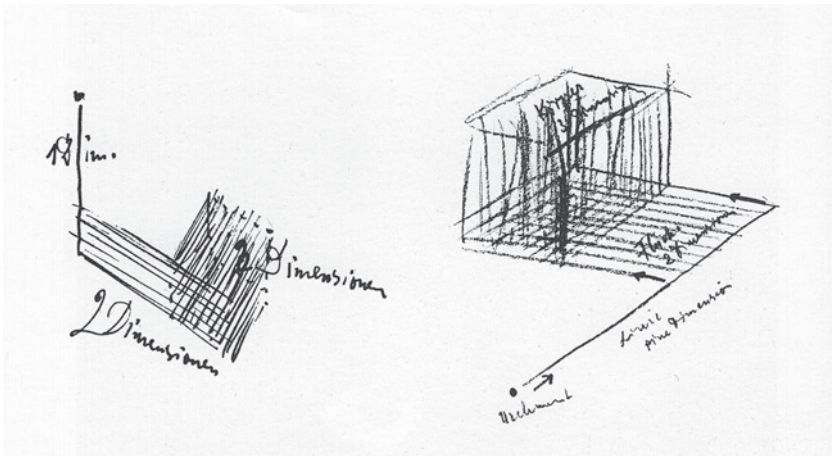 1 Dim.
2 Dimensionen
3 Dimensionen
Körper
3 Dimensionen
Fläche
2 Dimensionen
Linie
eine Dimension